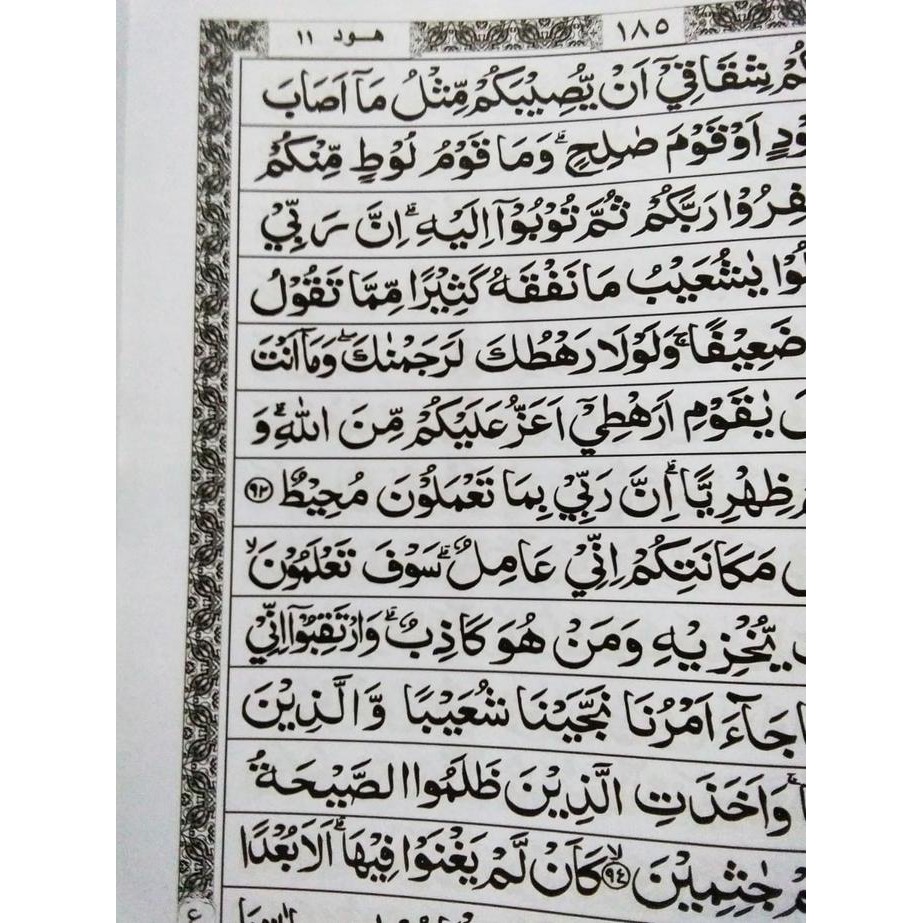 هود ١١
١٨٥
شِقَاقِيْٓ اَنْ يُّصِيْبَكُمْ مِّثْلُ مَآ اَصَابَ
اَوْ قَوْمَ صٰلِحٍ ۗ وَمَا قَوْمُ لُوْطٍ مِّنْكُمْ
رَبَّكُمْ ثُمَّ تُوْبُوْٓا اِلَيْهِ ۗ اِنَّ رَبِّيْ
يٰشُعَيْبُ مَا نَفْقَهُ كَثِيْرًا مِّمَّا تَقُوْلُ
ضَعِيْفًا ۗ وَلَوْلَا رَهْطُكَ لَرَجَمْنٰكَ ۖ وَمَآ اَنْتَ
يٰقَوْمِ اَرَهْطِيْٓ اَعَزُّ عَلَيْكُمْ مِّنَ اللّٰهِ ۗ وَ
ظِهْرِيًّا ۗ اِنَّ رَبِّيْ بِمَا تَعْمَلُوْنَ مُحِيْطٌ ٩٢
مَكَانَتِكُمْ اِنِّيْ عَامِلٌ ۗ سَوْفَ تَعْلَمُوْنَ ۙ
يُّخْزِيْهِ وَمَنْ هُوَ كَاذِبٌ ۗ وَارْتَقِبُوْٓا اِنِّيْ
جَآءَ اَمْرُنَا نَجَّيْنَا شُعَيْبًا وَّالَّذِيْنَ
وَاَخَذَتِ الَّذِيْنَ ظَلَمُوا الصَّيْحَةُ
جٰثِمِيْنَ ۙ ٩٤ كَاَنْ لَّمْ يَغْنَوْا فِيْهَا ۗ اَلَا بُعْدًا